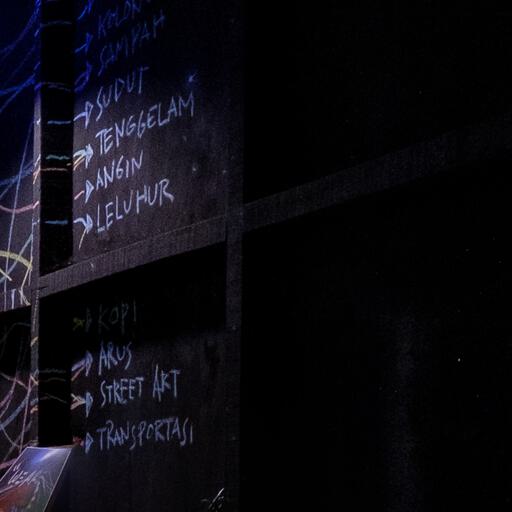 KOLONG
SAMPAH
SUDUT
TENGGELAM
ANGIN
LELUHUR
KOPI
ARUS
STREET ART
TRANSPORTASI